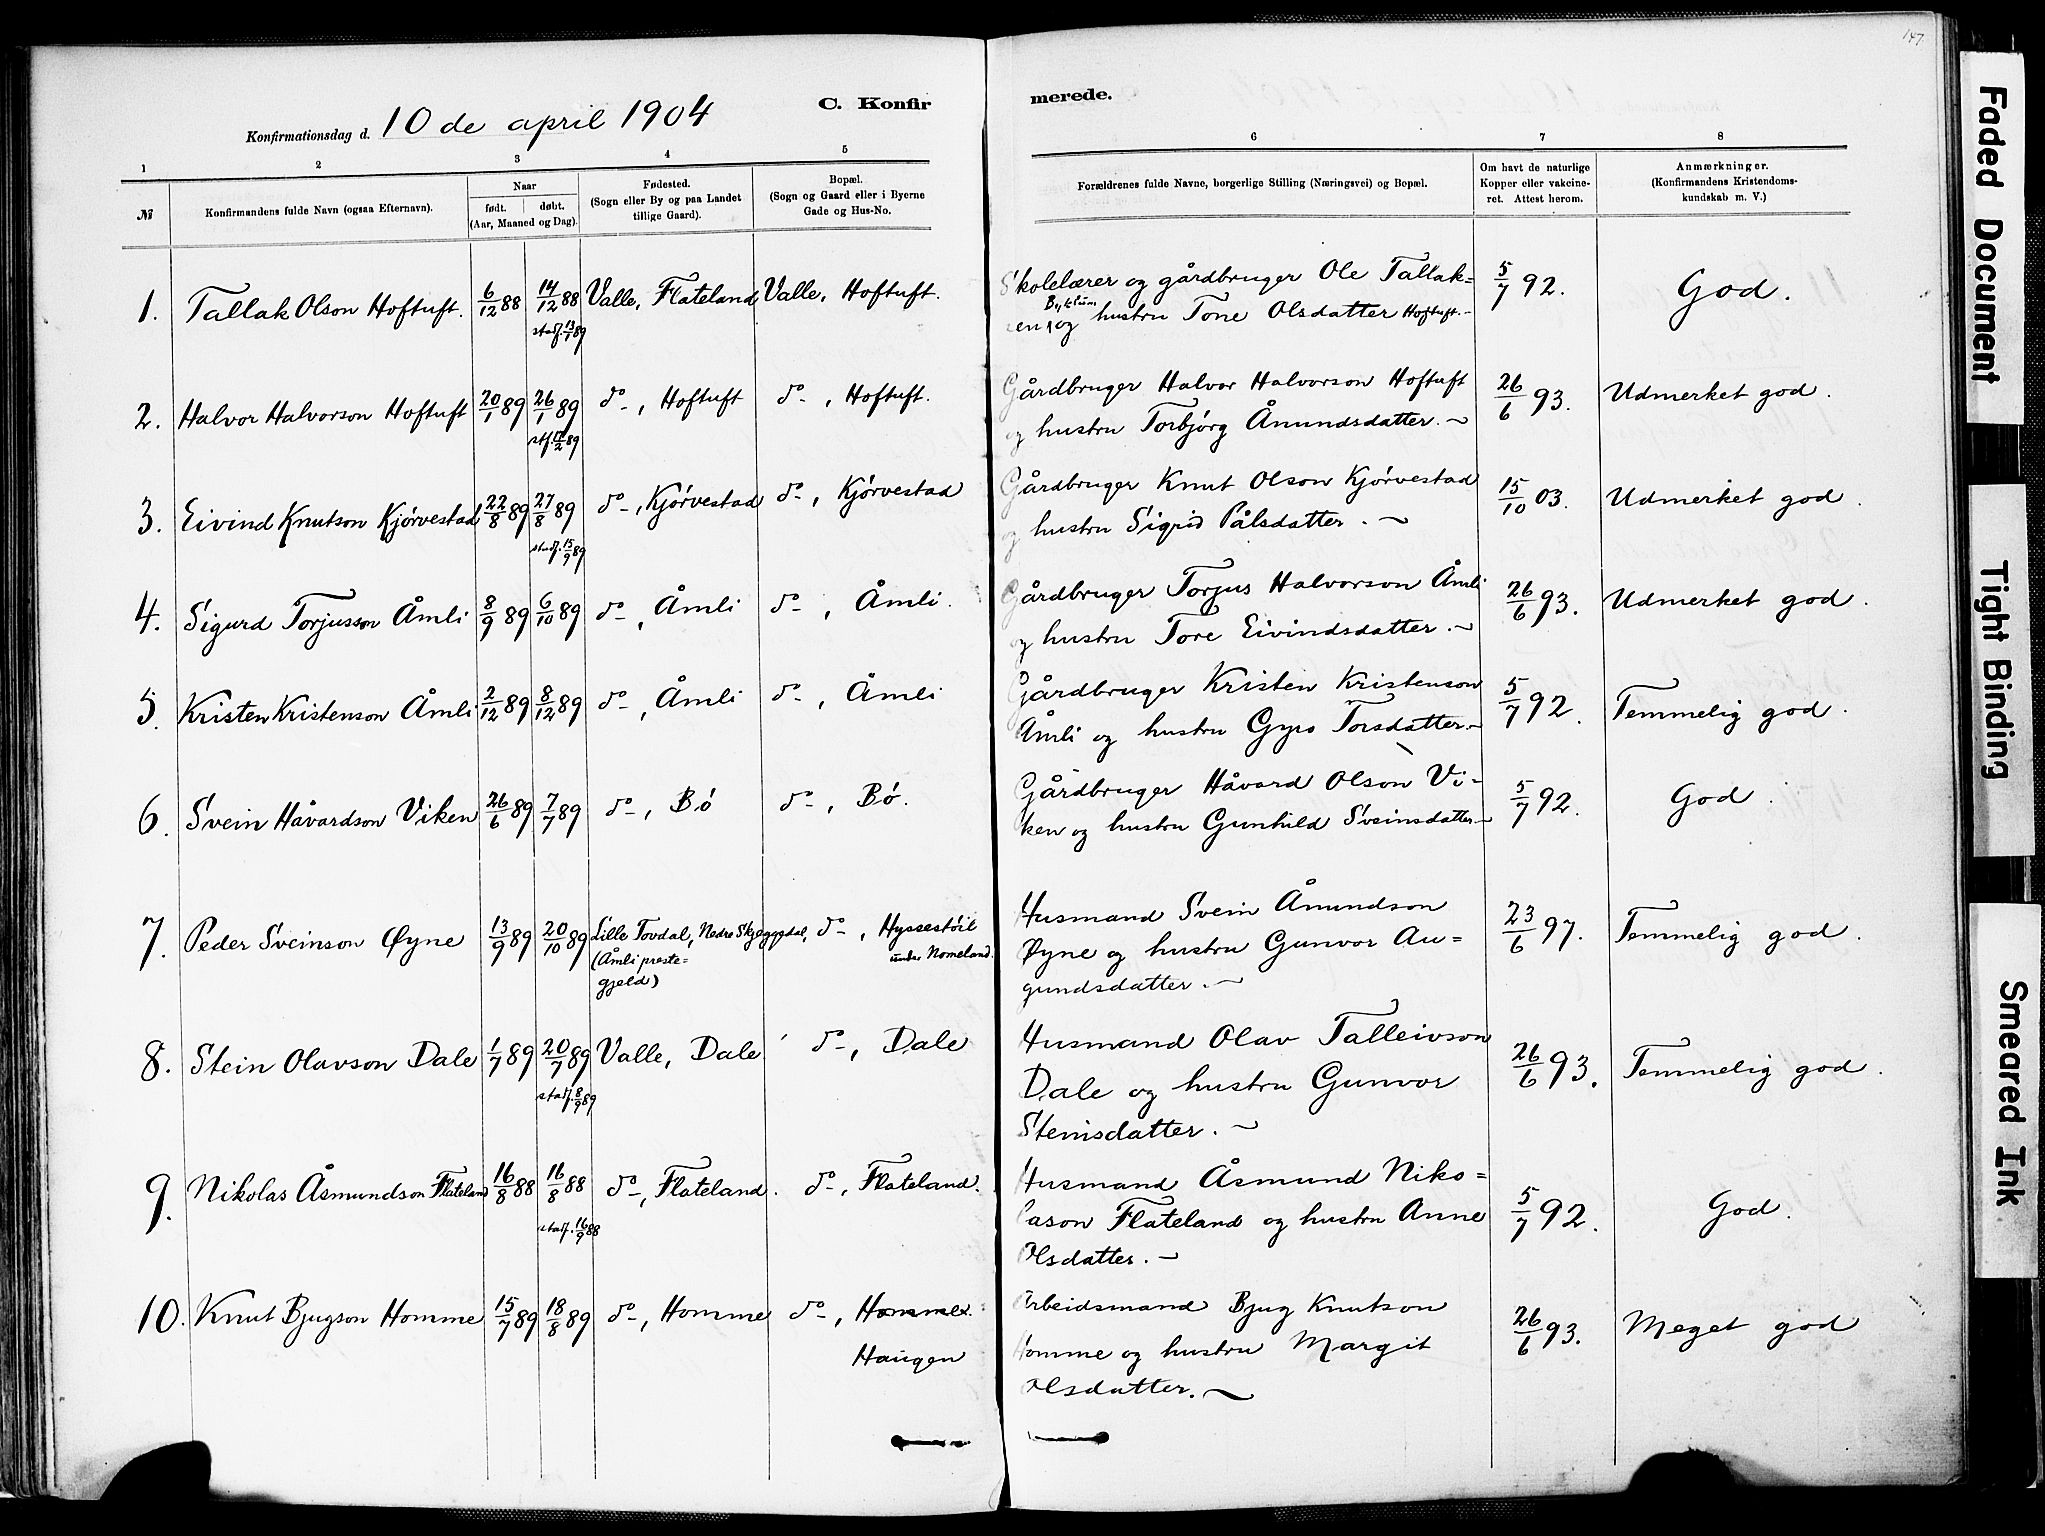 147.
C. Konfir
merede.
Konfirmationsdag d. 10 de april 1904
1 2 3 4 5 6 7 8
№
Konfirmandens fulde Navn (ogsaa Efternavn).
Naar
født. døbt.
(Aar, Maaned og Dag).
Fødested.
(Sogn eller By og paa Landet
tillige Gaard).
Bopæl.
(Sogn og Gaard eller i Byerne
Gade og Hus-No.
Forældrenes fulde Navne, borgerlige Stilling (Næringsvei) og Bopæl.
Om havt de naturlige
Kopper eller vakcine-
ret. Attest herom.
Anmærkninger.
(Konfirmandens Kristendoms-
kundskab m. V.)
1. Tallak Olson Hoftuft. 6/12 88 14/12 88 Valle, Flateland Valle, Hoftuft. Skolelærer og gårdbruger Ole Tallak= 5/7 92. God.
stadf. 13/1 89
Byklum
en, og hustru Tone Olsdatter Hoftuft.-
2. Halvor Halvorson Hoftuft 20/1 89 26/1 89 do -, Hoftuft do -, Hoftuft. Gårdbruger Halvor Halvorson Hoftuft 26/6 93. Udmerket god.
stf. 17/2 89
og hustru Torbjørg Åmundsdatter. ~
3. Eivind Knutson Kjørvestad 22/8 89 27/8 89 do -, Kjørvestad do -, Kjørvestad Gårdbruger Knut Olson Kjørvestad 15/10 03. Udmerket god.
stadf. 15/9 89
og hustru Sigrid Pålsdatter. ~
4. Sigurd Torjusson Åmli 8/9 89 6/10 89 do -, Åmli do -, Åmli. Gårdbruger Torjus Halvorson Åmli 26/6 93. Udmerket god.
og hustru Tore Eivindsdatter. ~
5. Kristen Kristenson Åmli 2/12 89 8/12 89 do -, Åmli do -, Åmli Gårdbruger Kristen Kristenson 5/7 92. Temmelig god.
Åmli og hustru Gyro Torsdatter. ~
6. Svein Håvardson Viken 26/6 89 7/7 89 do -, Bø do -, Bø. Gårdbruger Håvard Olson Vi= 5/7 92. God.
ken og hustru Gunhild Sveinsdatter ~
7. Peder Sveinson Øyne 13/9 89 20/10 89 Lille Tovdal, Nedre Skjeggedal, do -, Hyssestöil Husmand Svein Åmundson 23/6 97. Temmelig god.
(Åmli preste=
under Nomeland.
Øyne og hustru Gunvor Au=
gjeld)
gundsdatter. ~
8. Stein Olavson Dale 1/7 89 20/7 89 Valle, Dale do -, Dale Husmand Olav Talleivson 26/6 93. Temmelig god.
stadf. 8/9 89
Dale og hustru Gunvor
Steinsdatter. ~
9. Nikolas Åsmundson Flateland 16/8 88 16/8 88 do -, Flateland. do -, Flateland. Husmand Åsmund Niko= 5/7 92. God.
stadf. 16/9 88
lason Flateland og hustru Anne
Olsdatter. ~
10. Knut Bjugson Homme 15/7 89 18/8 89 do -, Homme do -, Homme. Arbeidsmand Bjug Knutson 26/6 93. Meget god
Haugen
Homme og hustru Margit
Olsdatter. ~
Faded Document
Tight Binding
Smeared Ink